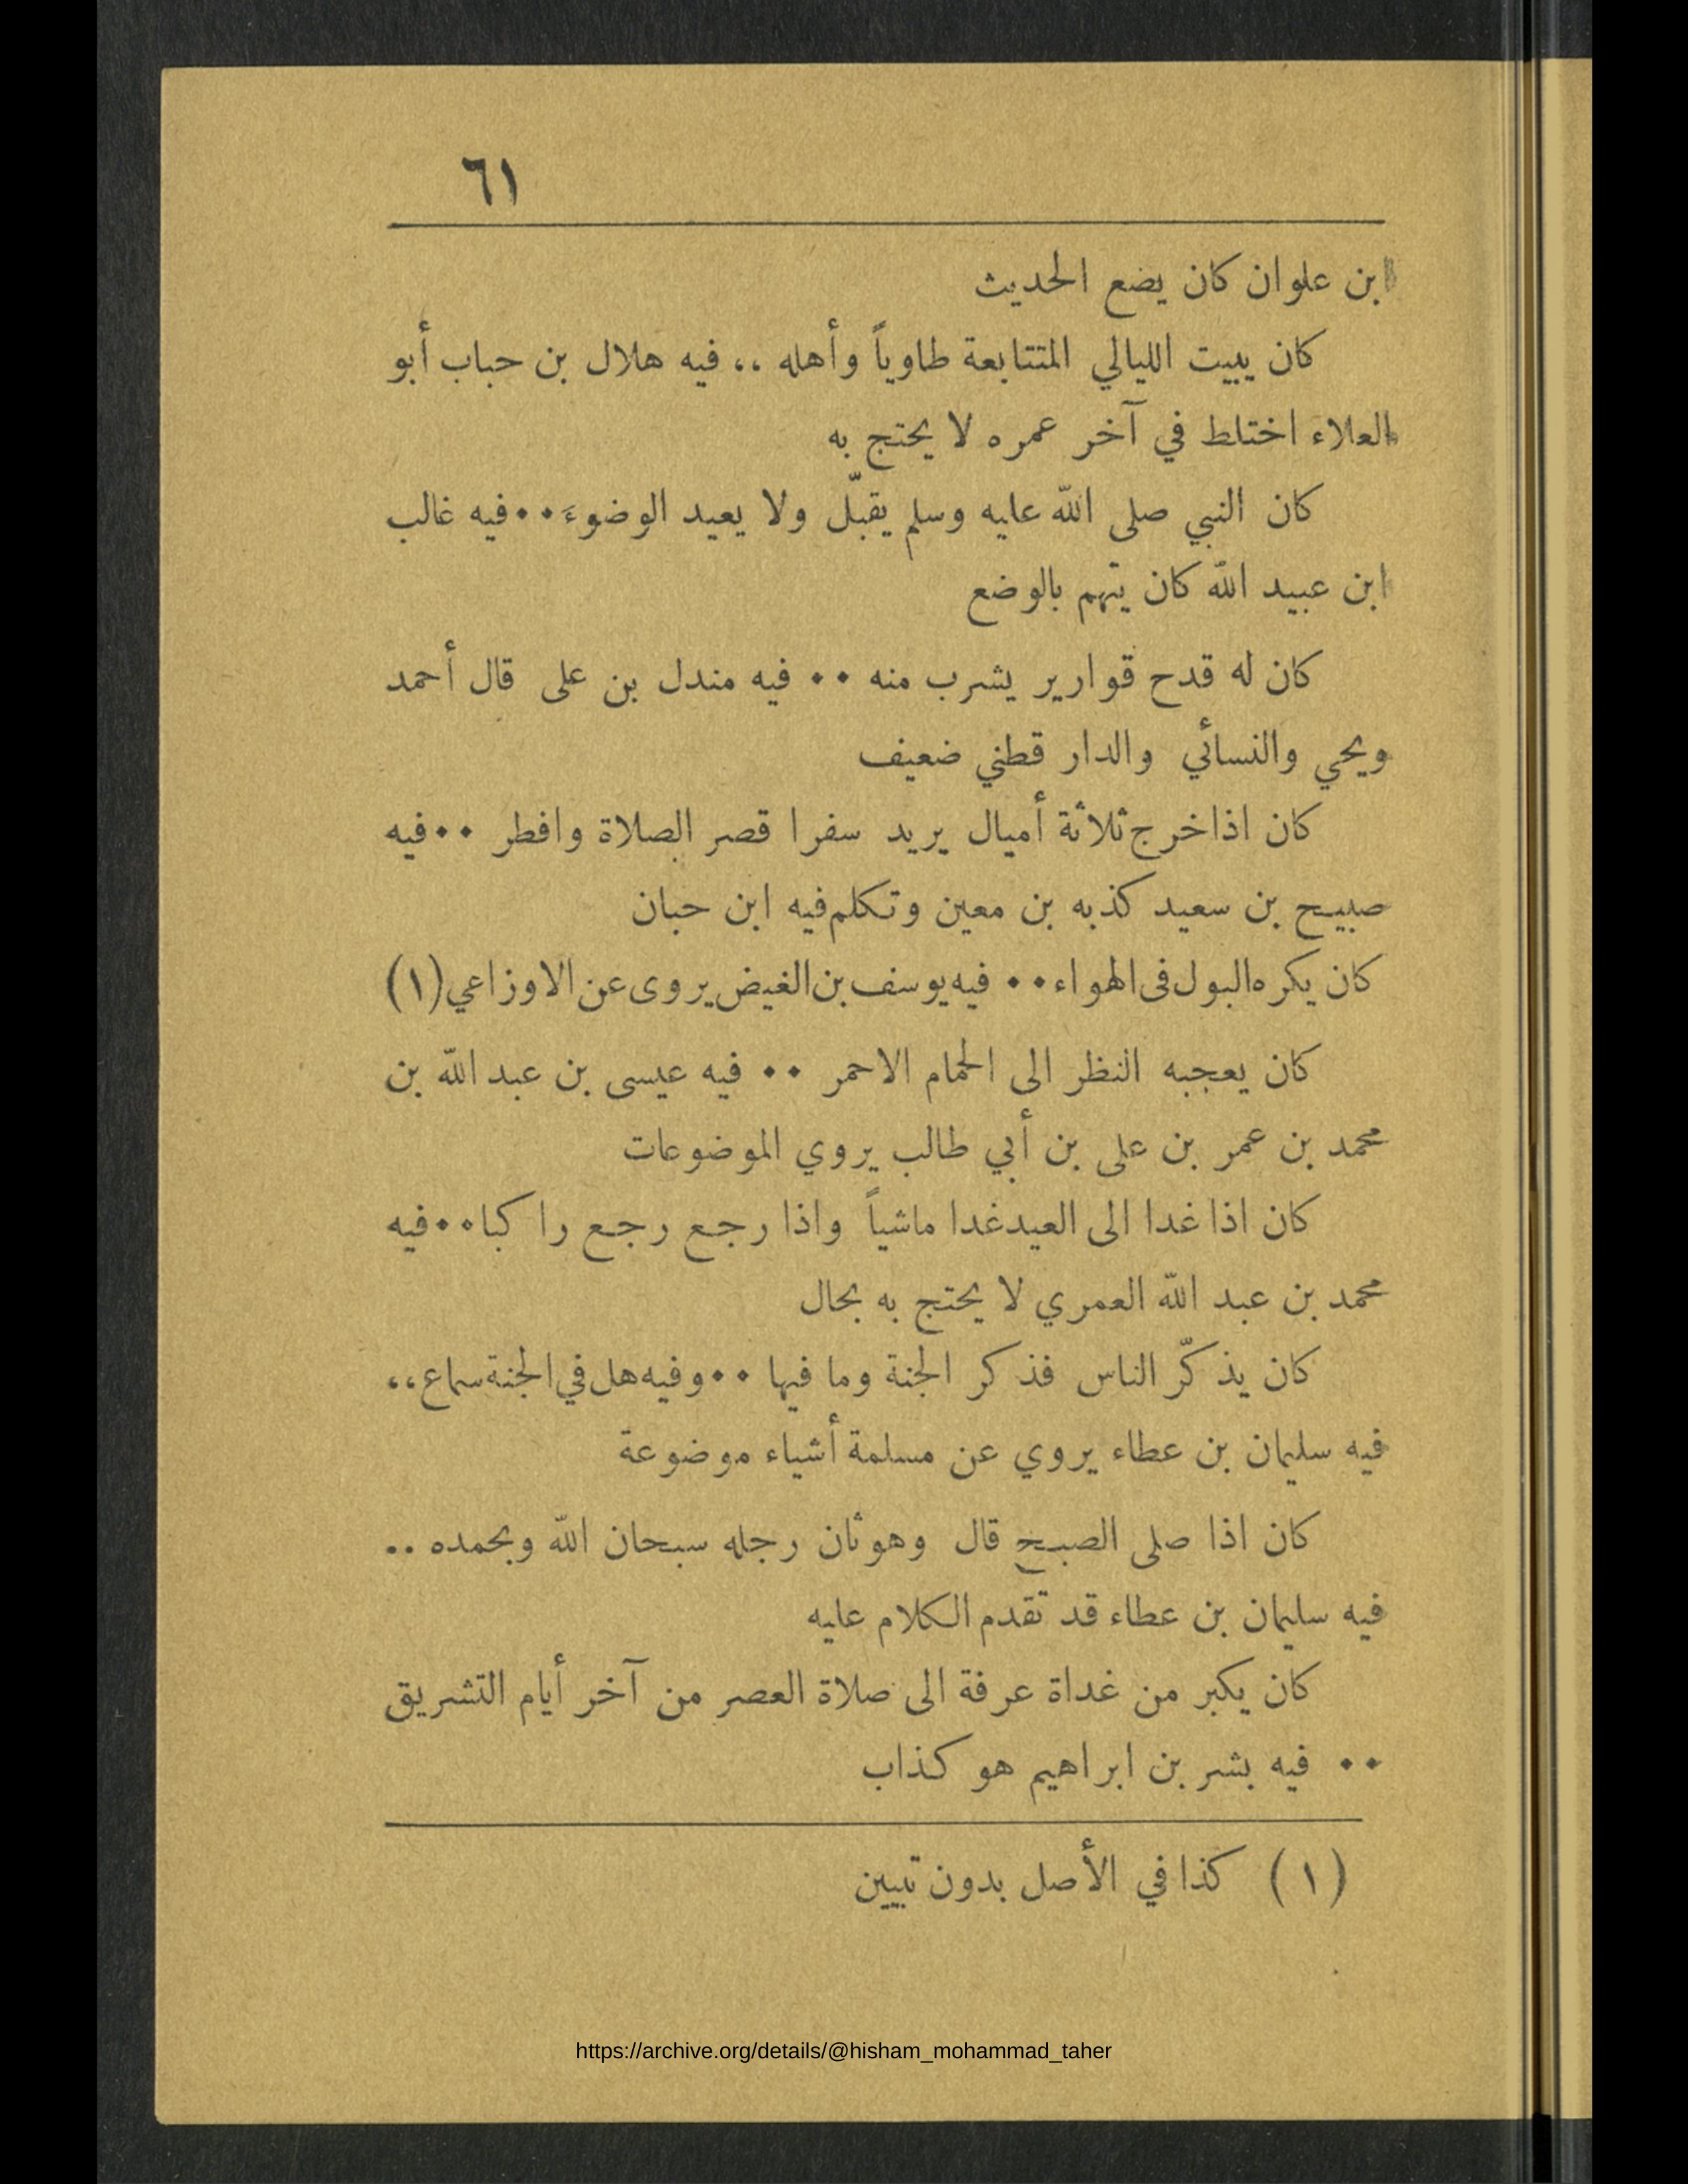 ٦١
ابن علوان كان يضع الحديث
كان يبيت الليالي المتتابعة طاوياً وأهله ،، فيه هلال بن حباب أبو
العلاء اختلط في آخر عمره لا يحتج به
كان النبي صلى الله عليه وسلم يقبّل ولا يعيد الوضوءَ٠٠فيه غالب
ابن عبيد الله كان يتهم بالوضع
كان له قدح قوارير يشرب منه ٠٠ فيه مندل بن على قال أحمد
ويحي والنسائي والدار قطني ضعيف
كان اذا خرج ثلاثة أميال يريد سفرا قصر الصلاة وافطر ٠٠فيه
صبيح بن سعيد كذبه بن معين وتكلم فيه ابن حبان
كان يكره البول فى الهواء٠٠ فيه يوسف بن الغيض يروى عن الاوزاعي (١)
كان يعجبه النظر الى الحمام الاحمر ٠٠ فيه عيسى بن عبد الله بن
محمد بن عمر بن على بن أبي طالب يروي الموضوعات
كان اذا غدا الى العيد غدا ماشياً واذا رجع رجع را كبا٠٠فيه
محمد بن عبد الله العمري لا يحتج به بحال
كان يذكّر الناس فذكر الجنة وما فيها ٠٠وفيه هل في الجنة سماع،،
فيه سليمان بن عطاء يروي عن مسلمة أشياء موضوعة
كان اذا صلى الصبح قال وهو ثان رجله سبحان الله وبحمده ..
فيه سليمان بن عطاء قد تقدم الكلام عليه
كان يكبر من غداة عرفة الى صلاة العصر من آخر أيام التشريق
٠٠ فيه بشر بن ابراهيم هو كذاب
(١) كذا في الأصل بدون تبيين
https://archive.org/details/@hisham_mohammad_taher